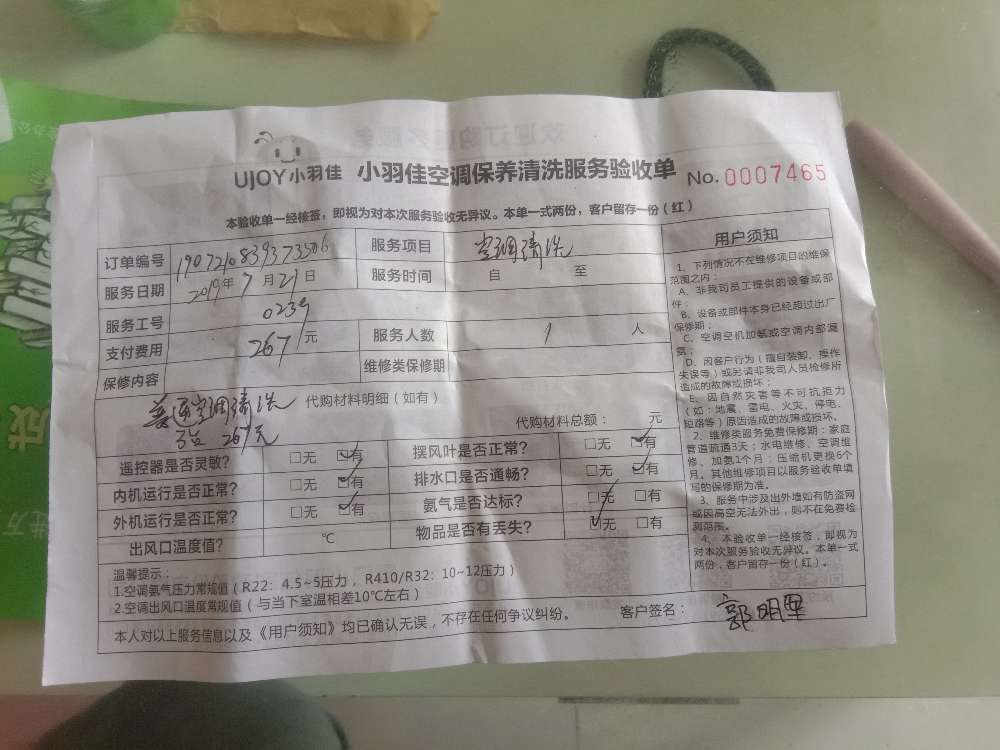 UJOY小羽佳 小羽佳空调保养清洗服务验收单 No.0007465
本验收单一经核签，即视为对本次服务验收无异议。本单一式两份，客户留存一份（红）
订单编号 1907210839373506 服务项目 空调清洗
服务日期 2019年7月21日 服务时间 自 至
服务工号 0239
支付费用 267元 服务人数 1 人
保修内容 维修类保修期
普通空调清洗 代购材料明细（如有）
3台 267元 代购材料总额： 元
遥控器是否灵敏？ □无 □有 摆风叶是否正常？ □无 □有
内机运行是否正常？ □无 □有 排水口是否通畅？ □无 □有
外机运行是否正常？ □无 □有 氨气是否达标？ □无 □有
出风口温度值？ ℃ 物品是否有丢失？ □无 □有
温馨提示：
1.空调氨气压力常规值（R22：4.5~5压力，R410/R32：10~12压力）
2.空调出风口温度常规值（与当下室温相差10℃左右）
本人对以上服务信息以及《用户须知》均已确认无误，不存在任何争议纠纷。 客户签名：郭明军
用户须知
1、下列情况不在维修项目的维保
范围之内：
A、非我司员工提供的设备或部
件；
B、设备或部件本身已经超过出厂
保修期；
C、空调空机加氨或空调内部漏
氨；
D、因客户行为（擅自装卸、操作
失误等）或另请非我司人员检修所
造成的故障或损坏；
E、因自然灾害等不可抗拒力
（如：地震、雷电、火灾、停电、
短路等）原因造成的故障或损坏。
2、维修类服务免费保修期：家庭
管道疏通3天；水电维修、空调维
修、加氨1个月；压缩机更换6个
月。其他维修项目以服务验收单填
写的保修期为准。
3、服务中涉及出外墙如有防盗网
或因高空无法外出，则不在免费检
测范围。
4、本验收单一经核签，即视为
对本次服务验收无异议。本单一式
两份，客户留存一份（红）。
成